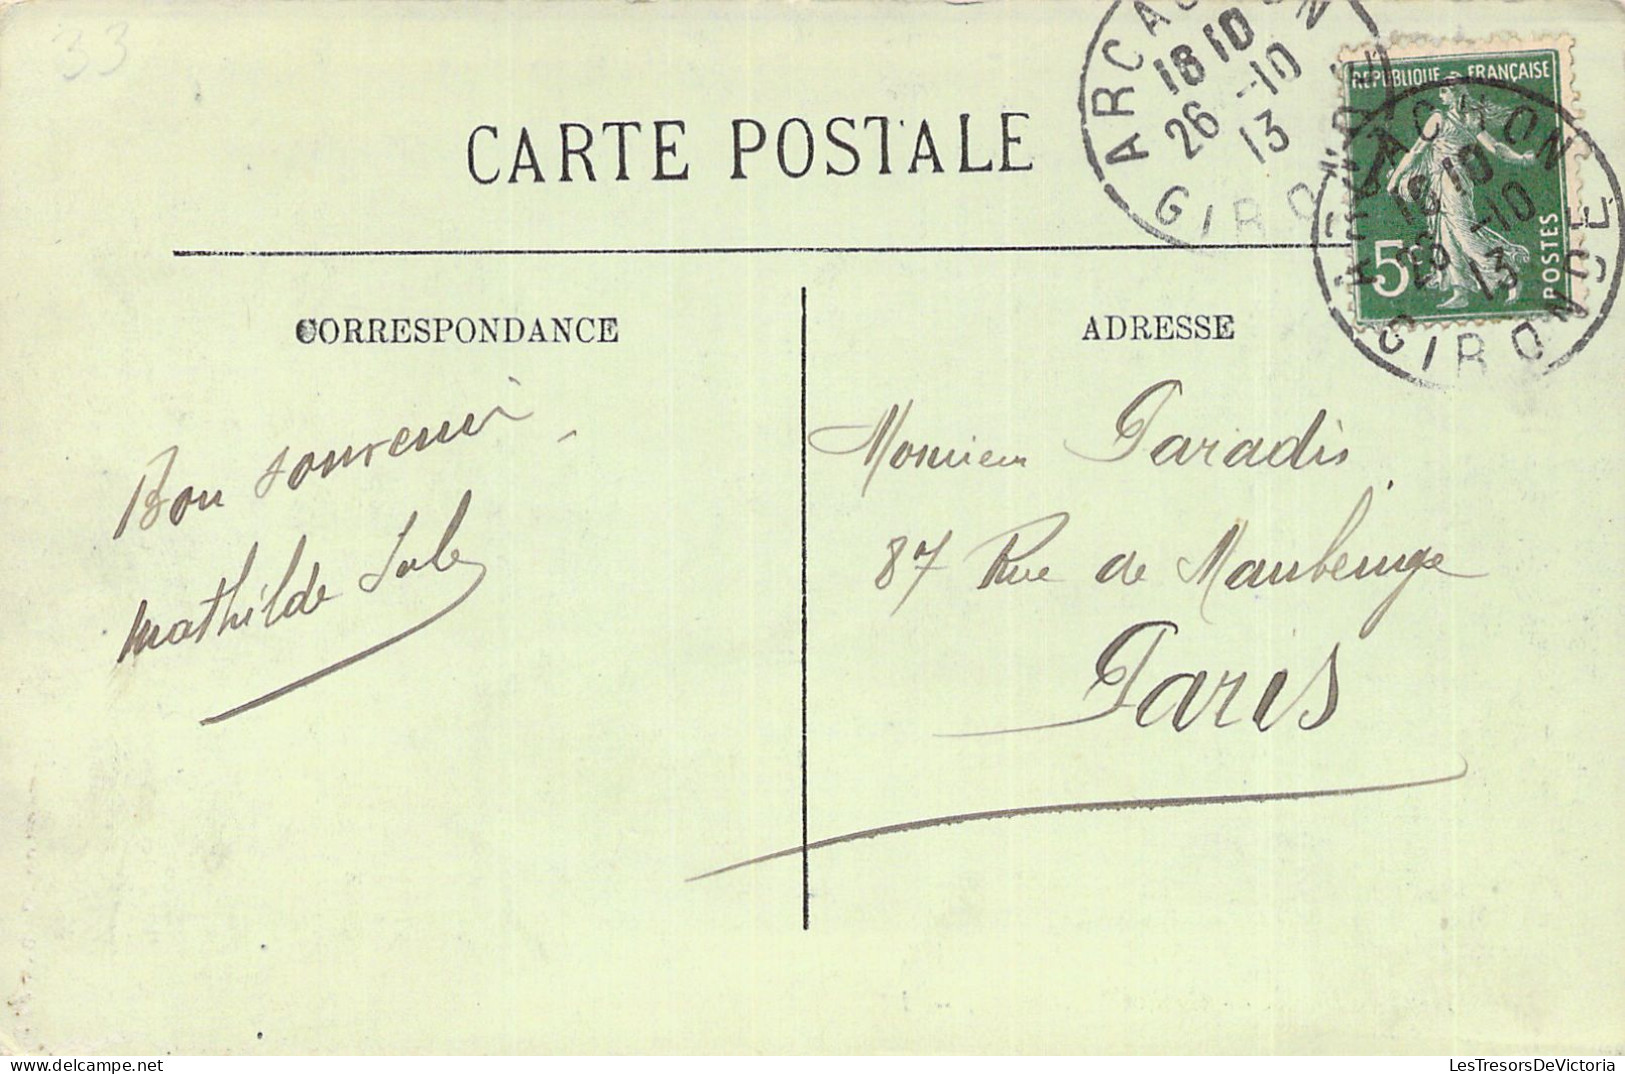 33
CARTE POSTALE
ARCACHON
18 10
26 -10
13
GIRONDE
REPUBLIQUE FRANÇAISE
5c
POSTES
ARCACHON
18 10
26 -10
13
GIRONDE
CORRESPONDANCE
ADRESSE
Bon souvenir
Mathilde
Monsieur Paradis
87 Rue de Maubeuge
Paris
LesTresorsDeVictoria